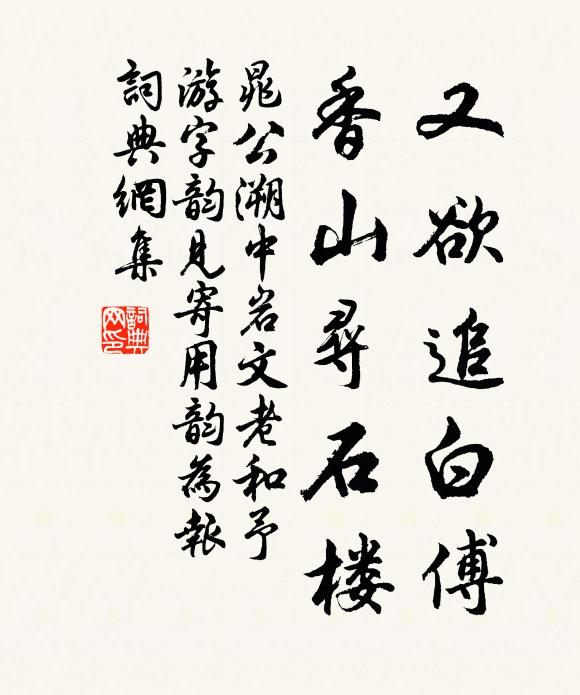 又欲追白傅
香山尋石楼
晁公溯中岩文老和予
游字韵見寄用韵為報
詞典網集
詞典网印